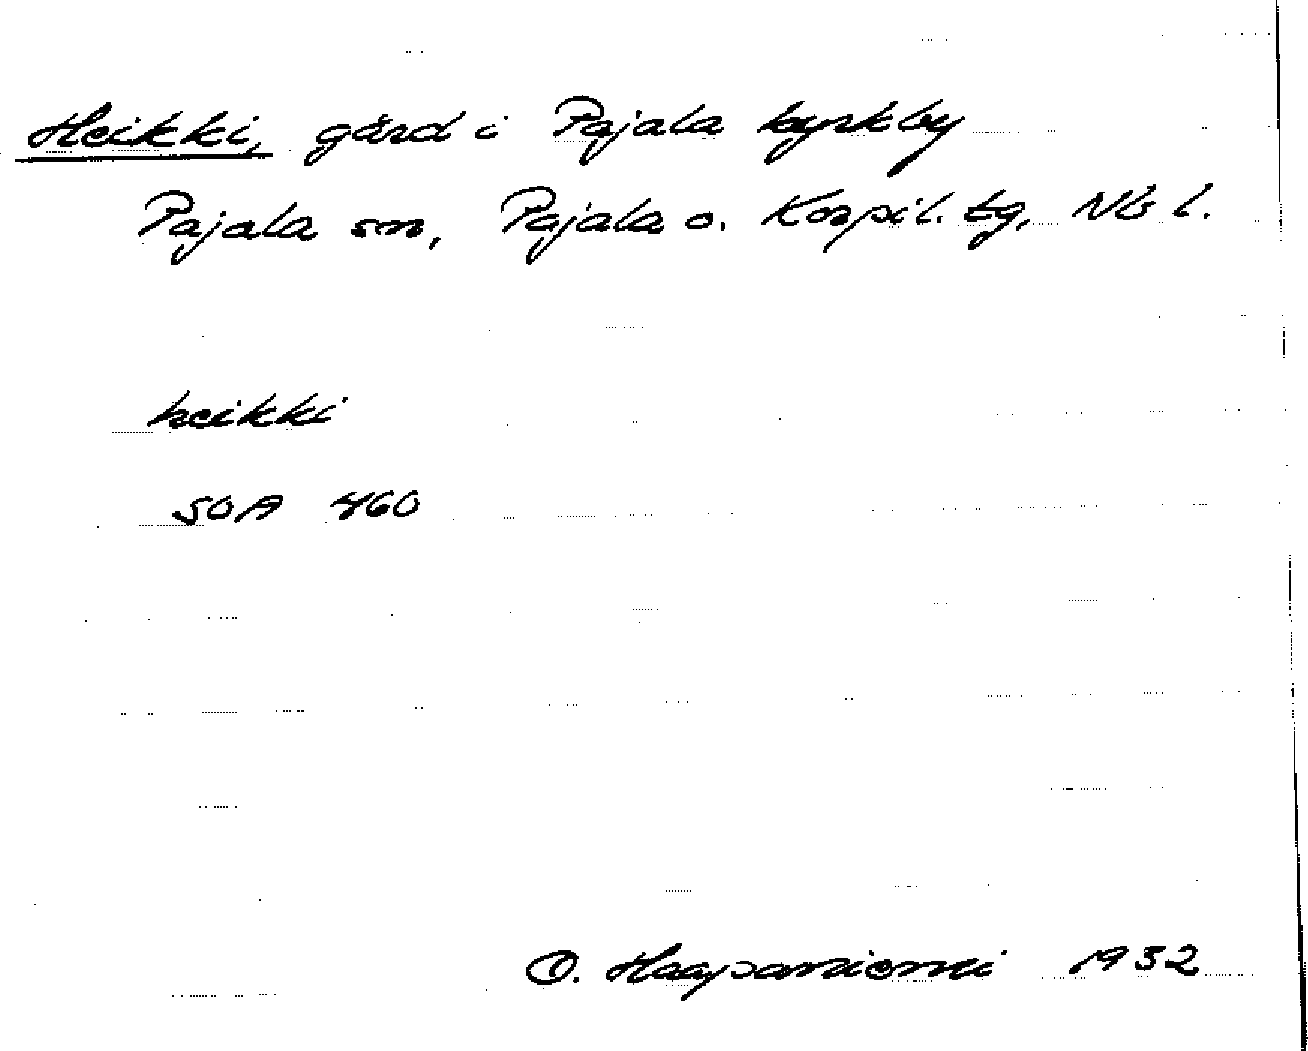 Heikki, gård i Pajala kyrkby
Pajala sn, Pajala o. Korpil. tg, Nb l.
heikki
SOA 460
O. Haapaniemi 1932